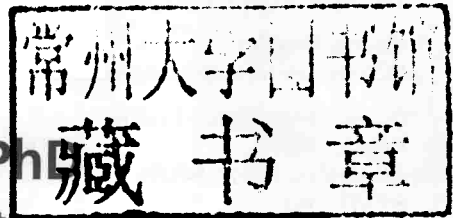 常州大学图书馆
藏书章
PhD